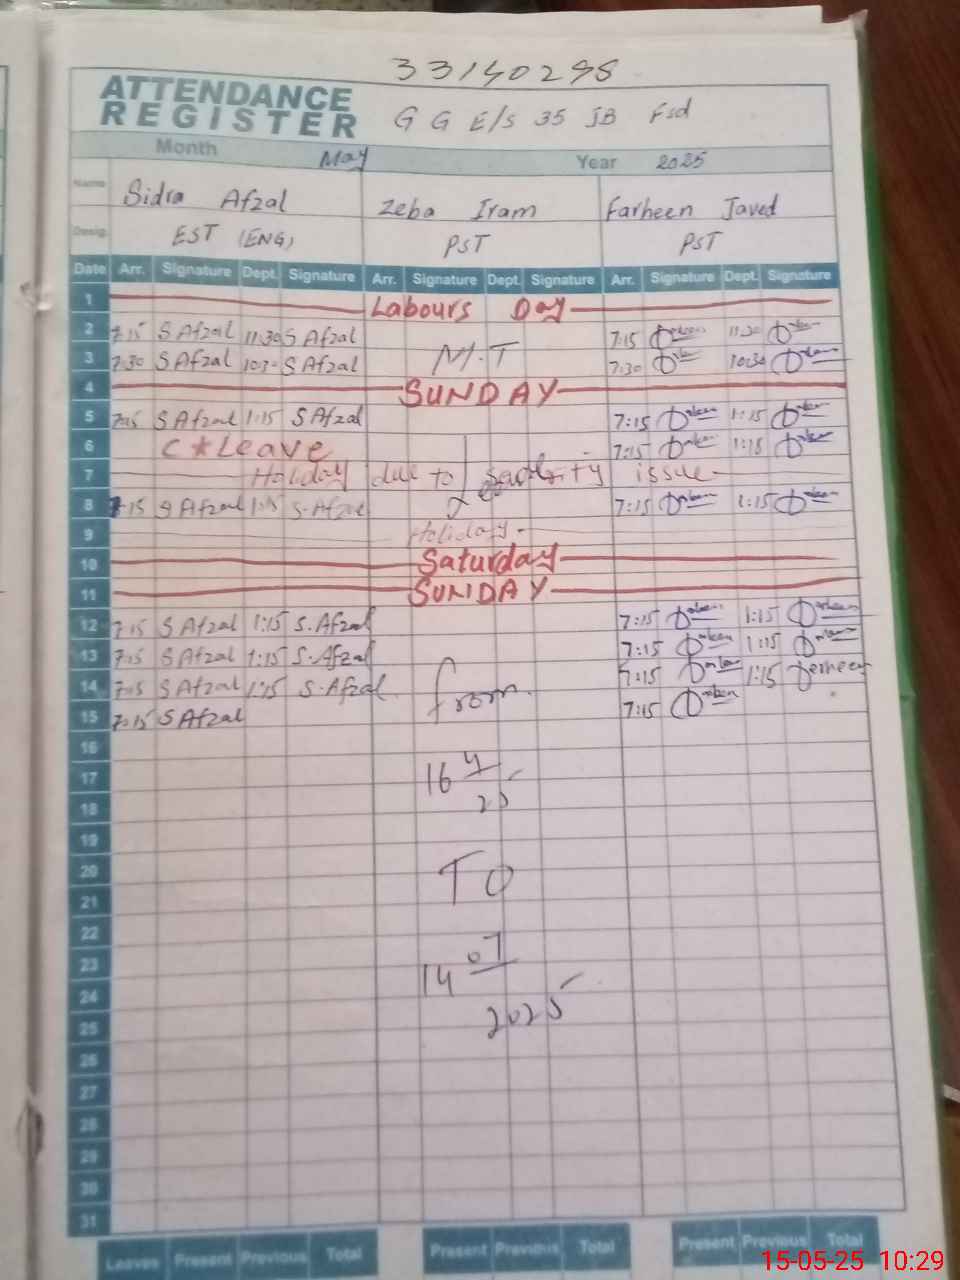 33140298
ATTENDANCE REGISTER
G G E/S 35 JB Fsd
Month May Year 2025
Name Sidra Afzal Zeba Iram Farheen Javed
Desig. EST (ENG) PST PST
Date Arr. Signature Dept. Signature Arr. Signature Dept. Signature Arr. Signature Dept. Signature
1 Labours Day
2 7:15 S Afzal 11:30 S Afzal 7:15 11:30
3 7:30 S Afzal 10:30 S Afzal M.T 7:30 10:30
4 SUNDAY
5 7:15 S Afzal 1:15 S Afzal 7:15 1:15
6 C*Leave 7:15 1:15
7 Holiday due to issue
8 7:15 S Afzal 1:15 S.Afzal 7:15 1:15
9 Holiday
10 Saturday
11 SUNDAY
12 7:15 S Afzal 1:15 S.Afzal 7:15 1:15
13 7:15 S Afzal 1:15 S.Afzal 7:15 1:15
14 7:15 S Afzal 1:15 S.Afzal from 7:15 1:15
15 7:15 S Afzal 7:15
16
17 16 4/25
18
19
20 TO
21
22
23 14 07/2025
24
25
26
27
28
29
30
31
Leaves Present Previous Total Present Previous Total Present Previous Total
15-05-25 10:29